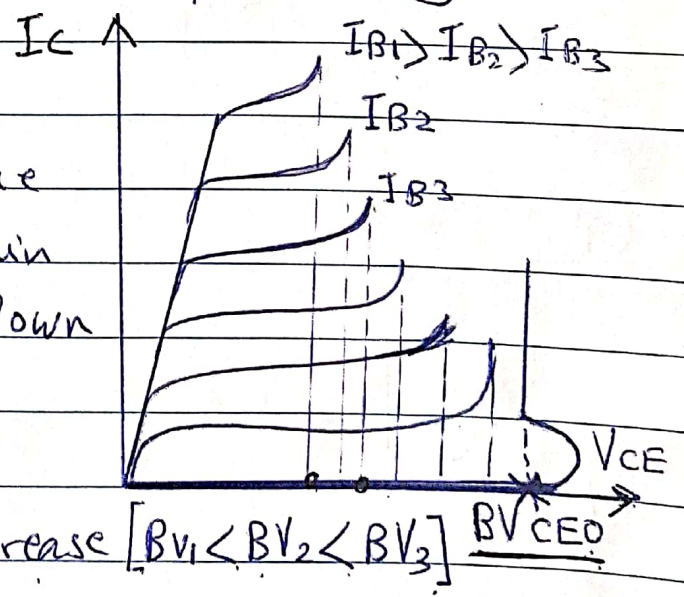 Ic IB1>IB2>IB3
IB2
IB3
own
VCE
rease [BV1<BV2<BV3] BVCEO